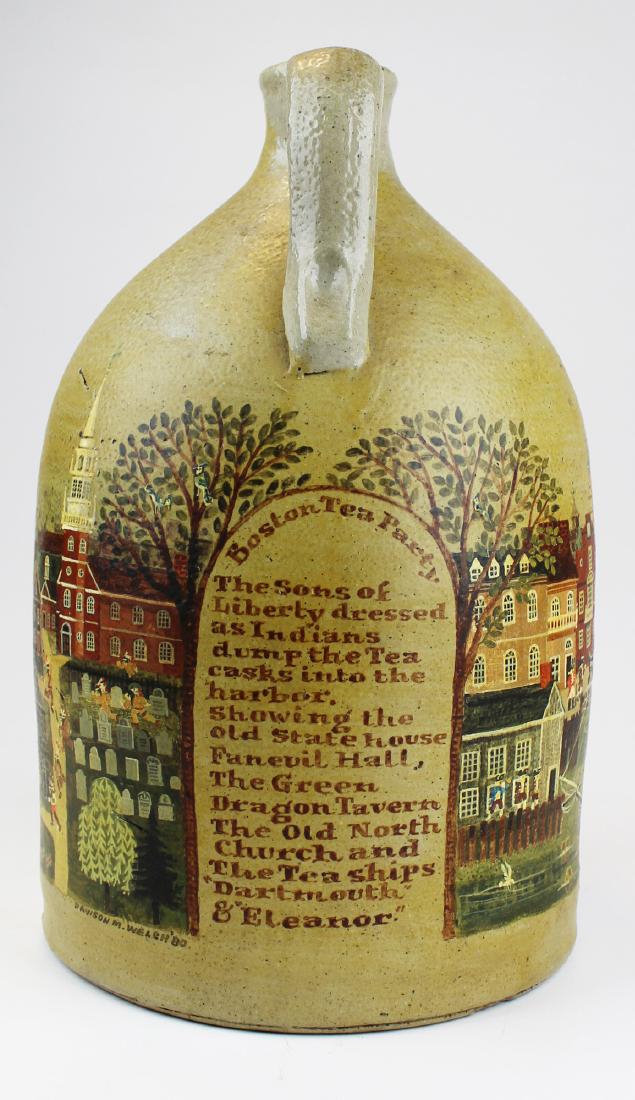 Boston Tea Party.
The Sons of
Liberty dressed
as Indians
dump the Tea
casks into the
harbor.
Showing the
Old State house
Faneuil Hall,
The Green
Dragon Tavern
The Old North
Church and
The Tea ships
"Dartmouth"
& "Eleanor."
DAVISON M. WELCH '80